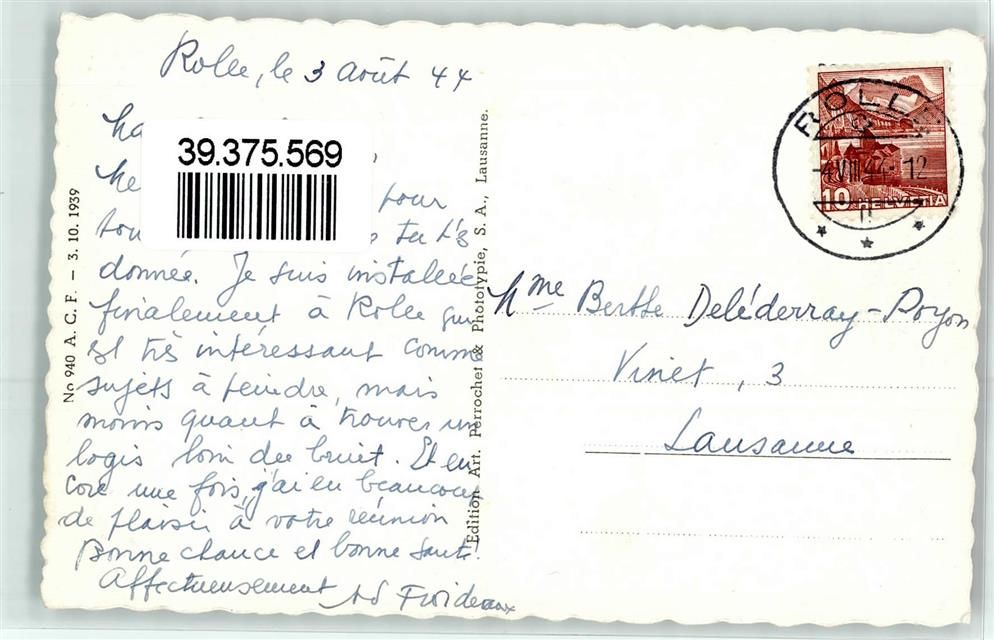 Rolle, le 3 Août 44
39.375.569
pour
donnée. Je suis installée
finalement à Rolle qui
est très intéressant comme
sujets à peindre, mais
moins quant à trouver un
logis loin du bruit. Et en
core une fois, j'ai eu beaucoup
de plaisir à votre réunion
Bonne chance et bonne santé!
Affectueusement Froideaux
No 940 A. C. F. – 3. 10. 1939
Edition Art. Perrochet & Phototypie, S. A., Lausanne.
ROLLE
4 VIII 44 - 12
10 HELVETIA
Mme Berthe Delédevray-Poyon
Vinet, 3
Lausanne